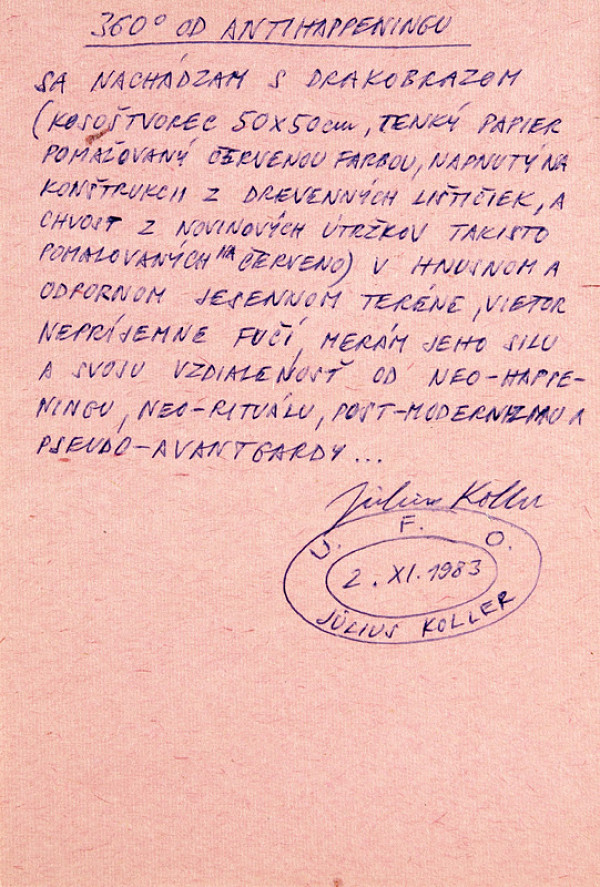 360° OD ANTIHAPPENINGU
SA NACHÁDZAM S DRAKOBRAZOM
(KOSOŠTVOREC 50x50cm, TENKÝ PAPIER
POMAĽOVANÝ ČERVENOU FARBOU, NAPNUTÝ NA
KONŠTRUKCII Z DREVENNÝCH LIŠTIČIEK, A
CHVOST Z NOVINOVÝCH ÚTRŽKOV TAKISTO
POMAĽOVANÝCH NA ČERVENO) V HNUSNOM A
ODPORNOM JESENNOM TERÉNE, VIETOR
NEPRÍJEMNE FUČÍ, MERÁM JEHO SILU
A SVOJU VZDIALENOSŤ OD NEO-HAPPE-
NINGU, NEO-RITUÁLU, POST-MODERNIZMU A
PSEUDO-AVANTGARDY...
Július Koller
U. F. O.
2. XI. 1983
JÚLIUS KOLLER